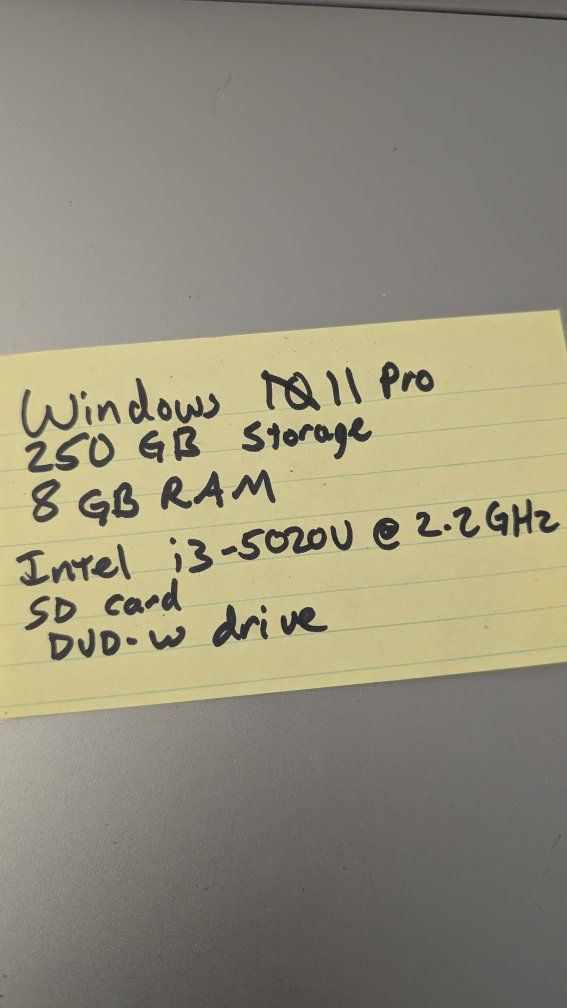 Windows 10 11 Pro
250 GB Storage
8 GB RAM
Intel i3-5020U @ 2.2GHz
SD card
DVD-W drive